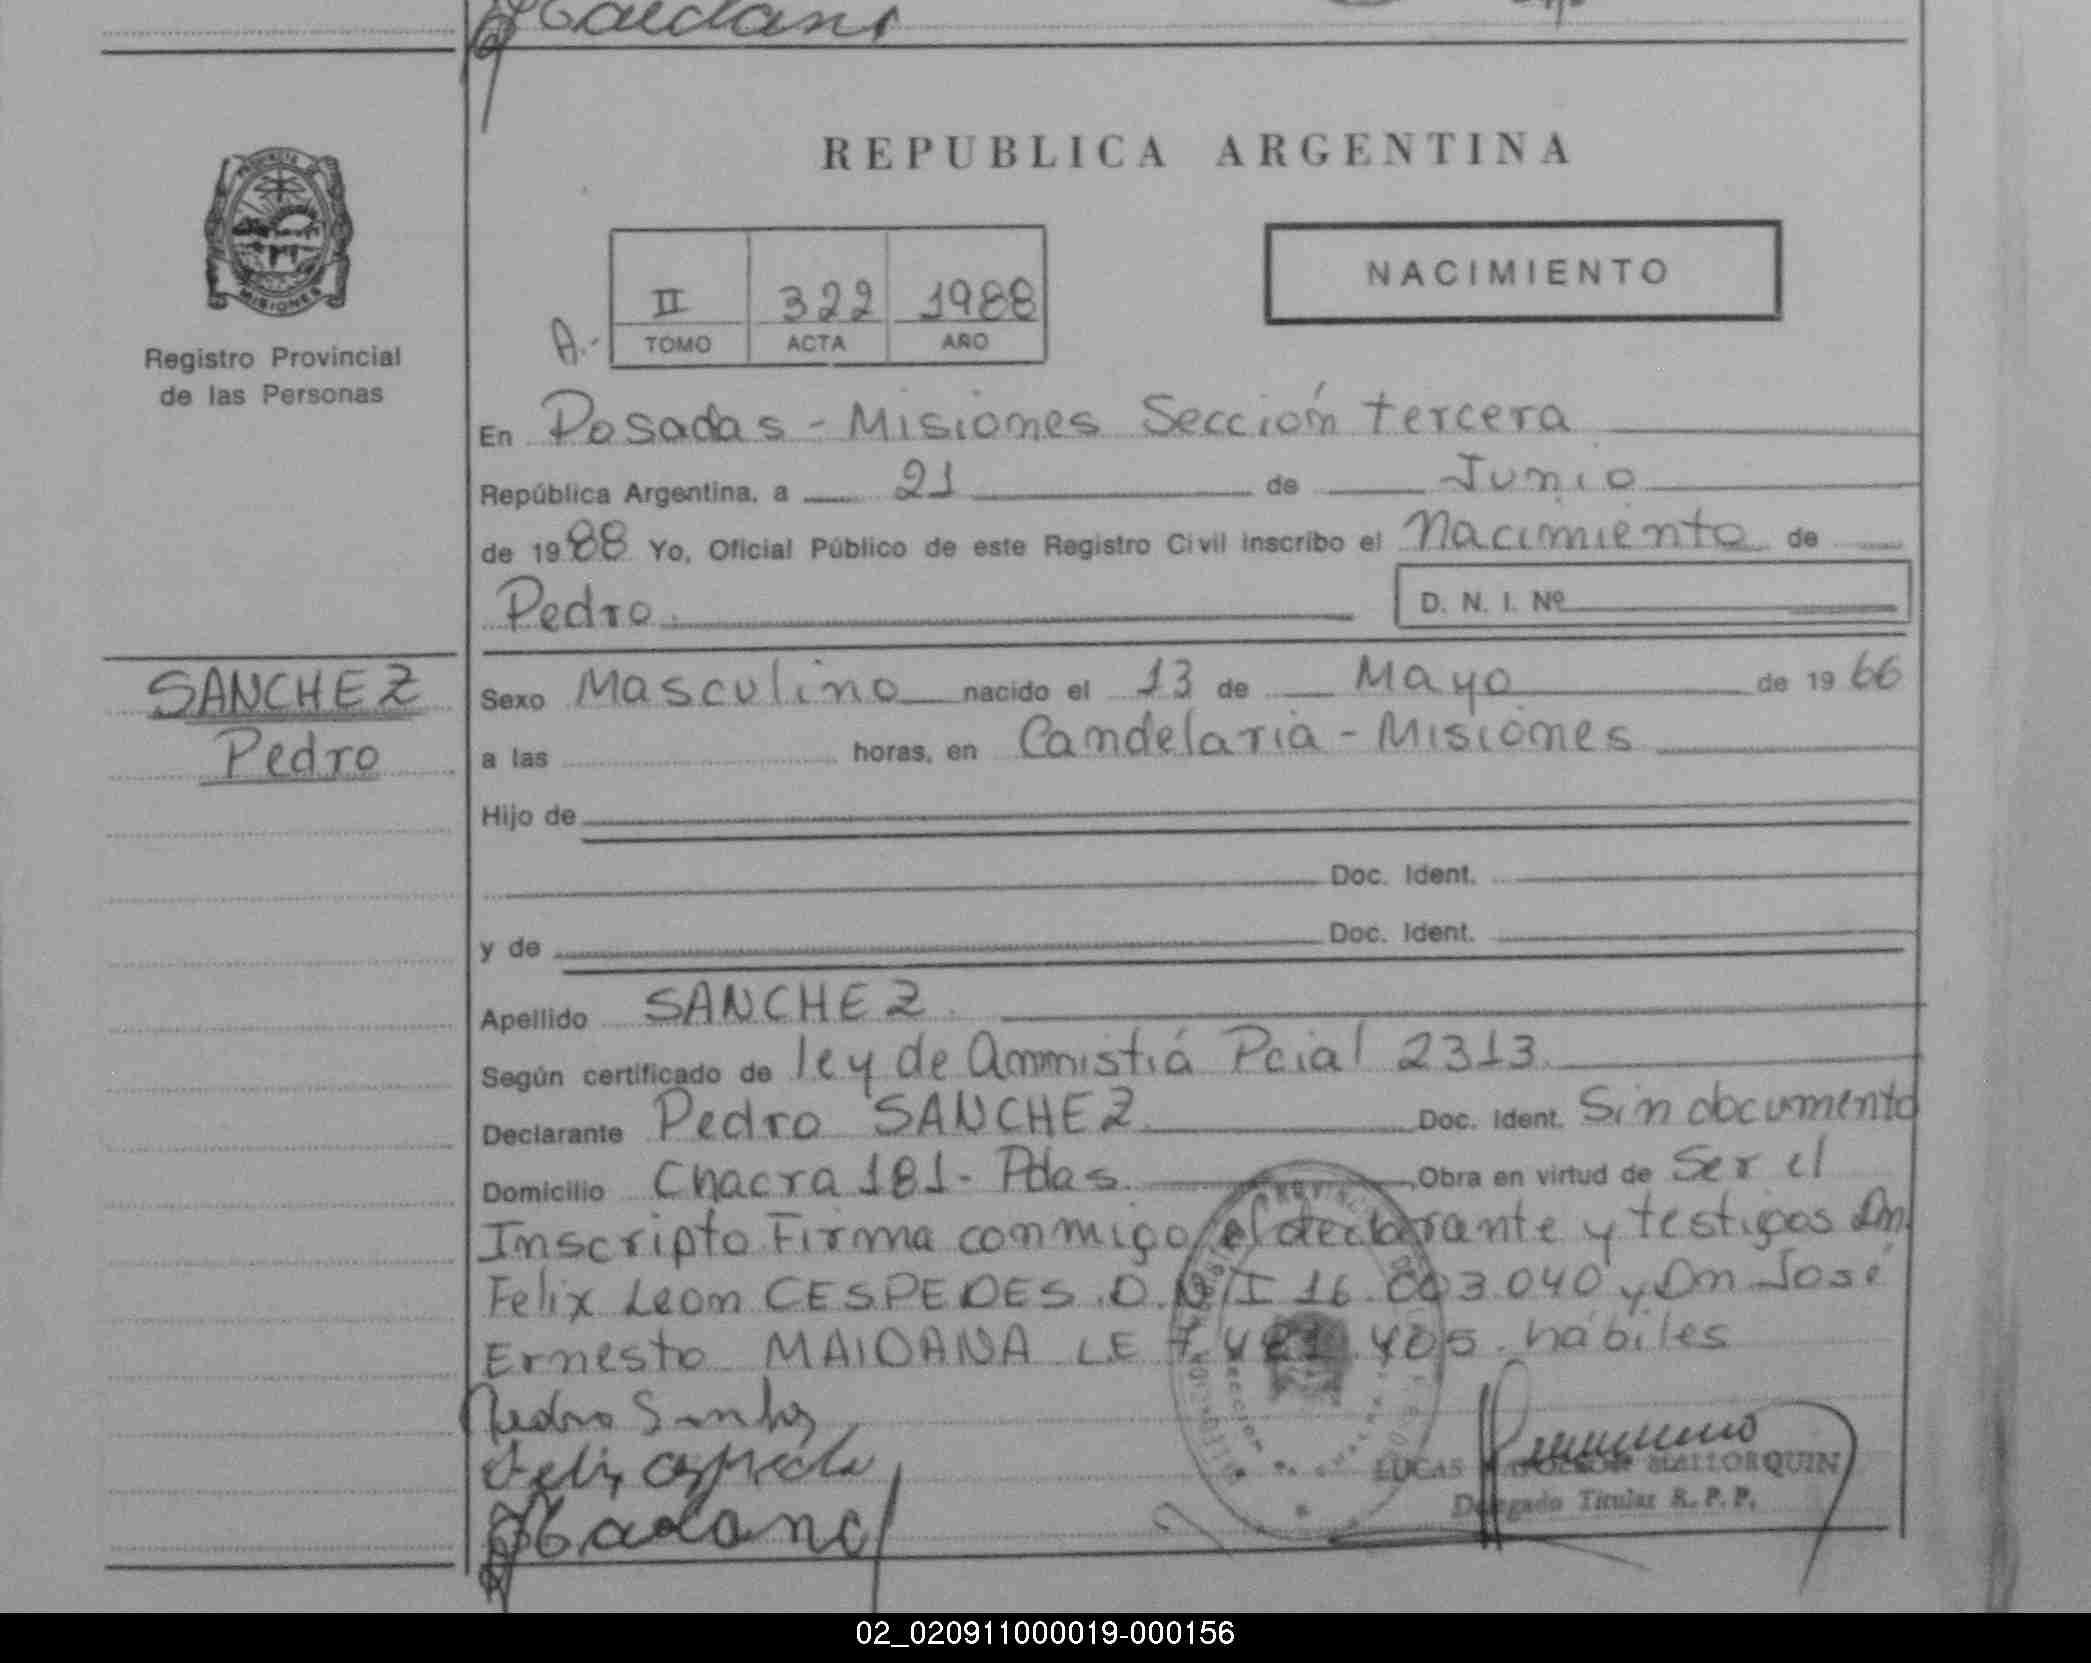 REPUBLICA ARGENTINA
PROVINCIA
MISIONES
Registro Provincial
de las Personas
NACIMIENTO
A.-
II 322 1988
TOMO ACTA AÑO
En Posadas - Misiones Sección tercera
República Argentina, a 21 de Junio
de 1988 Yo, Oficial Público de este Registro Civil inscribo el Nacimiento de
Pedro D. N. I. Nº
SANCHEZ
Pedro
Sexo Masculino nacido el 13 de Mayo de 1966
a las horas, en Candelaria - Misiones
Hijo de
Doc. Ident.
y de Doc. Ident.
Apellido SANCHEZ
Según certificado de ley de Ammistiá Pcial 2313
Declarante Pedro SANCHEZ Doc. Ident. Sin documento
Domicilio Chacra 181 - Pdas. Obra en virtud de Ser el
Inscripto Firma conmigo el declarante y testigos Dn.
Felix Leon CESPEDES D.N.I 16.003.040 y Dn José
Ernesto MAIDANA LE hábiles
Pedro
Felix
LUCAS MALLORQUIN
Delegado Titular R. P. P.
02_020911000019-000156